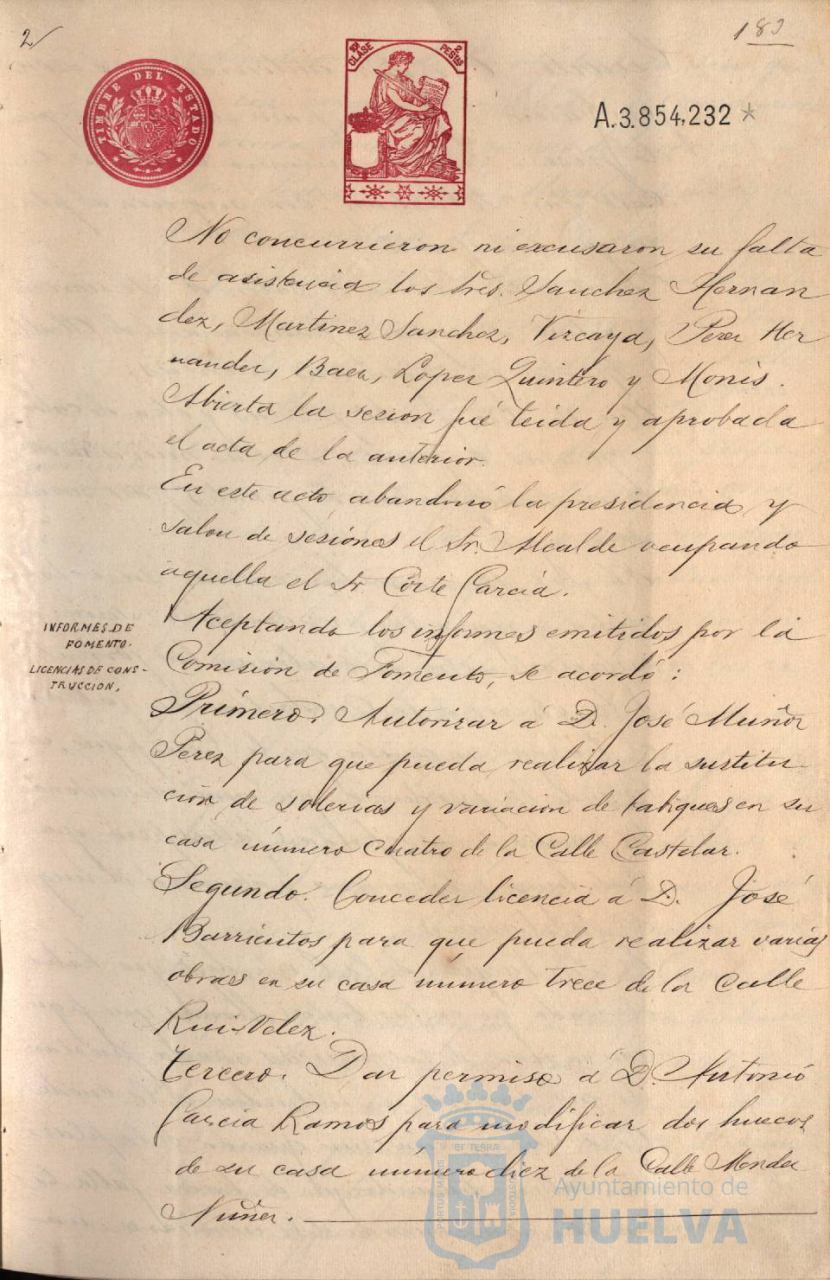 2
182
TIMBRE DEL ESTADO
10ª CLASE
2 PESETAS
A.3.854,232 *
No concurrieron ni excusaron su falta
de asistencia los Sres. Sanchez Hernan
dez, Martinez Sanchez, Vizcaya, Perez Her
nandez, Baez, Lopez Quintero y Monis.
Abierta la sesion fué leida y aprobada
el acta de la anterior.
En este acto, abandonó la presidencia y
salon de sesiones el Sr. Alcalde ocupando
aquella el Sr Córte Garcia.
INFORMES DE
FOMENTO.
LICENCIAS DE CONS-
TRUCCION.
Aceptando los informes emitidos por la
Comisión de Fomento, se acordó:
Primero. Autorizar á D. José Muñoz
Perez para que pueda realizar la sustitu-
ción de solerias y variacion de tabiques en su
casa número cuatro de la Calle Castelar.
Segundo. Conceder licencia á D. José
Barrientos para que pueda realizar varias
obras en su casa número trece de la calle
Rui-Velez.
Tercero. Dar permiso á D. Antonio
Garcia Ramos para modificar dos huecos
de su casa número diez de la Calle Mendez
Nuñez.
PORTUS MARIS
ET TERRA
CUSTODIA
Ayuntamiento de
HUELVA